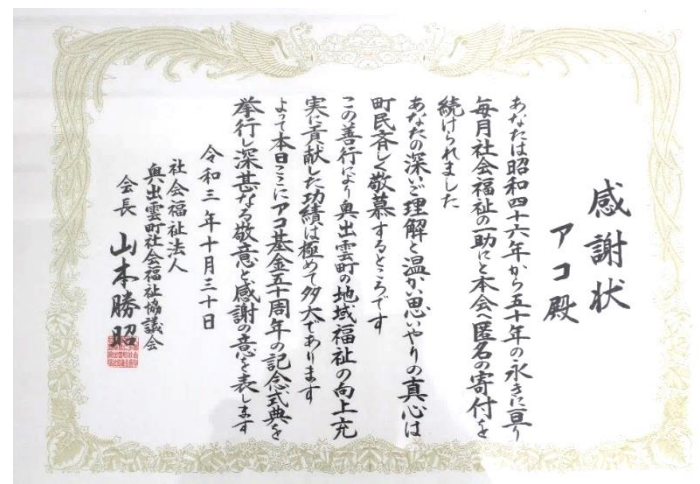 感謝状
アコ殿
あなたは昭和四十六年から五十年の永きに亘り
毎月社会福祉の一助にと本会へ匿名の寄付を
続けられました
あなたの深いご理解と温かい思いやりの真心は
町民斉しく敬慕するところです
この善行により奥出雲町の地域福祉の向上充
実に貢献した功績は極めて多大であります
よって本日ここにアコ基金五十周年の記念式典を
挙行し深甚なる敬意と感謝の意を表します
令和三年十月三十日
社会福祉法人
奥出雲町社会福祉協議会
会長 山本勝昭